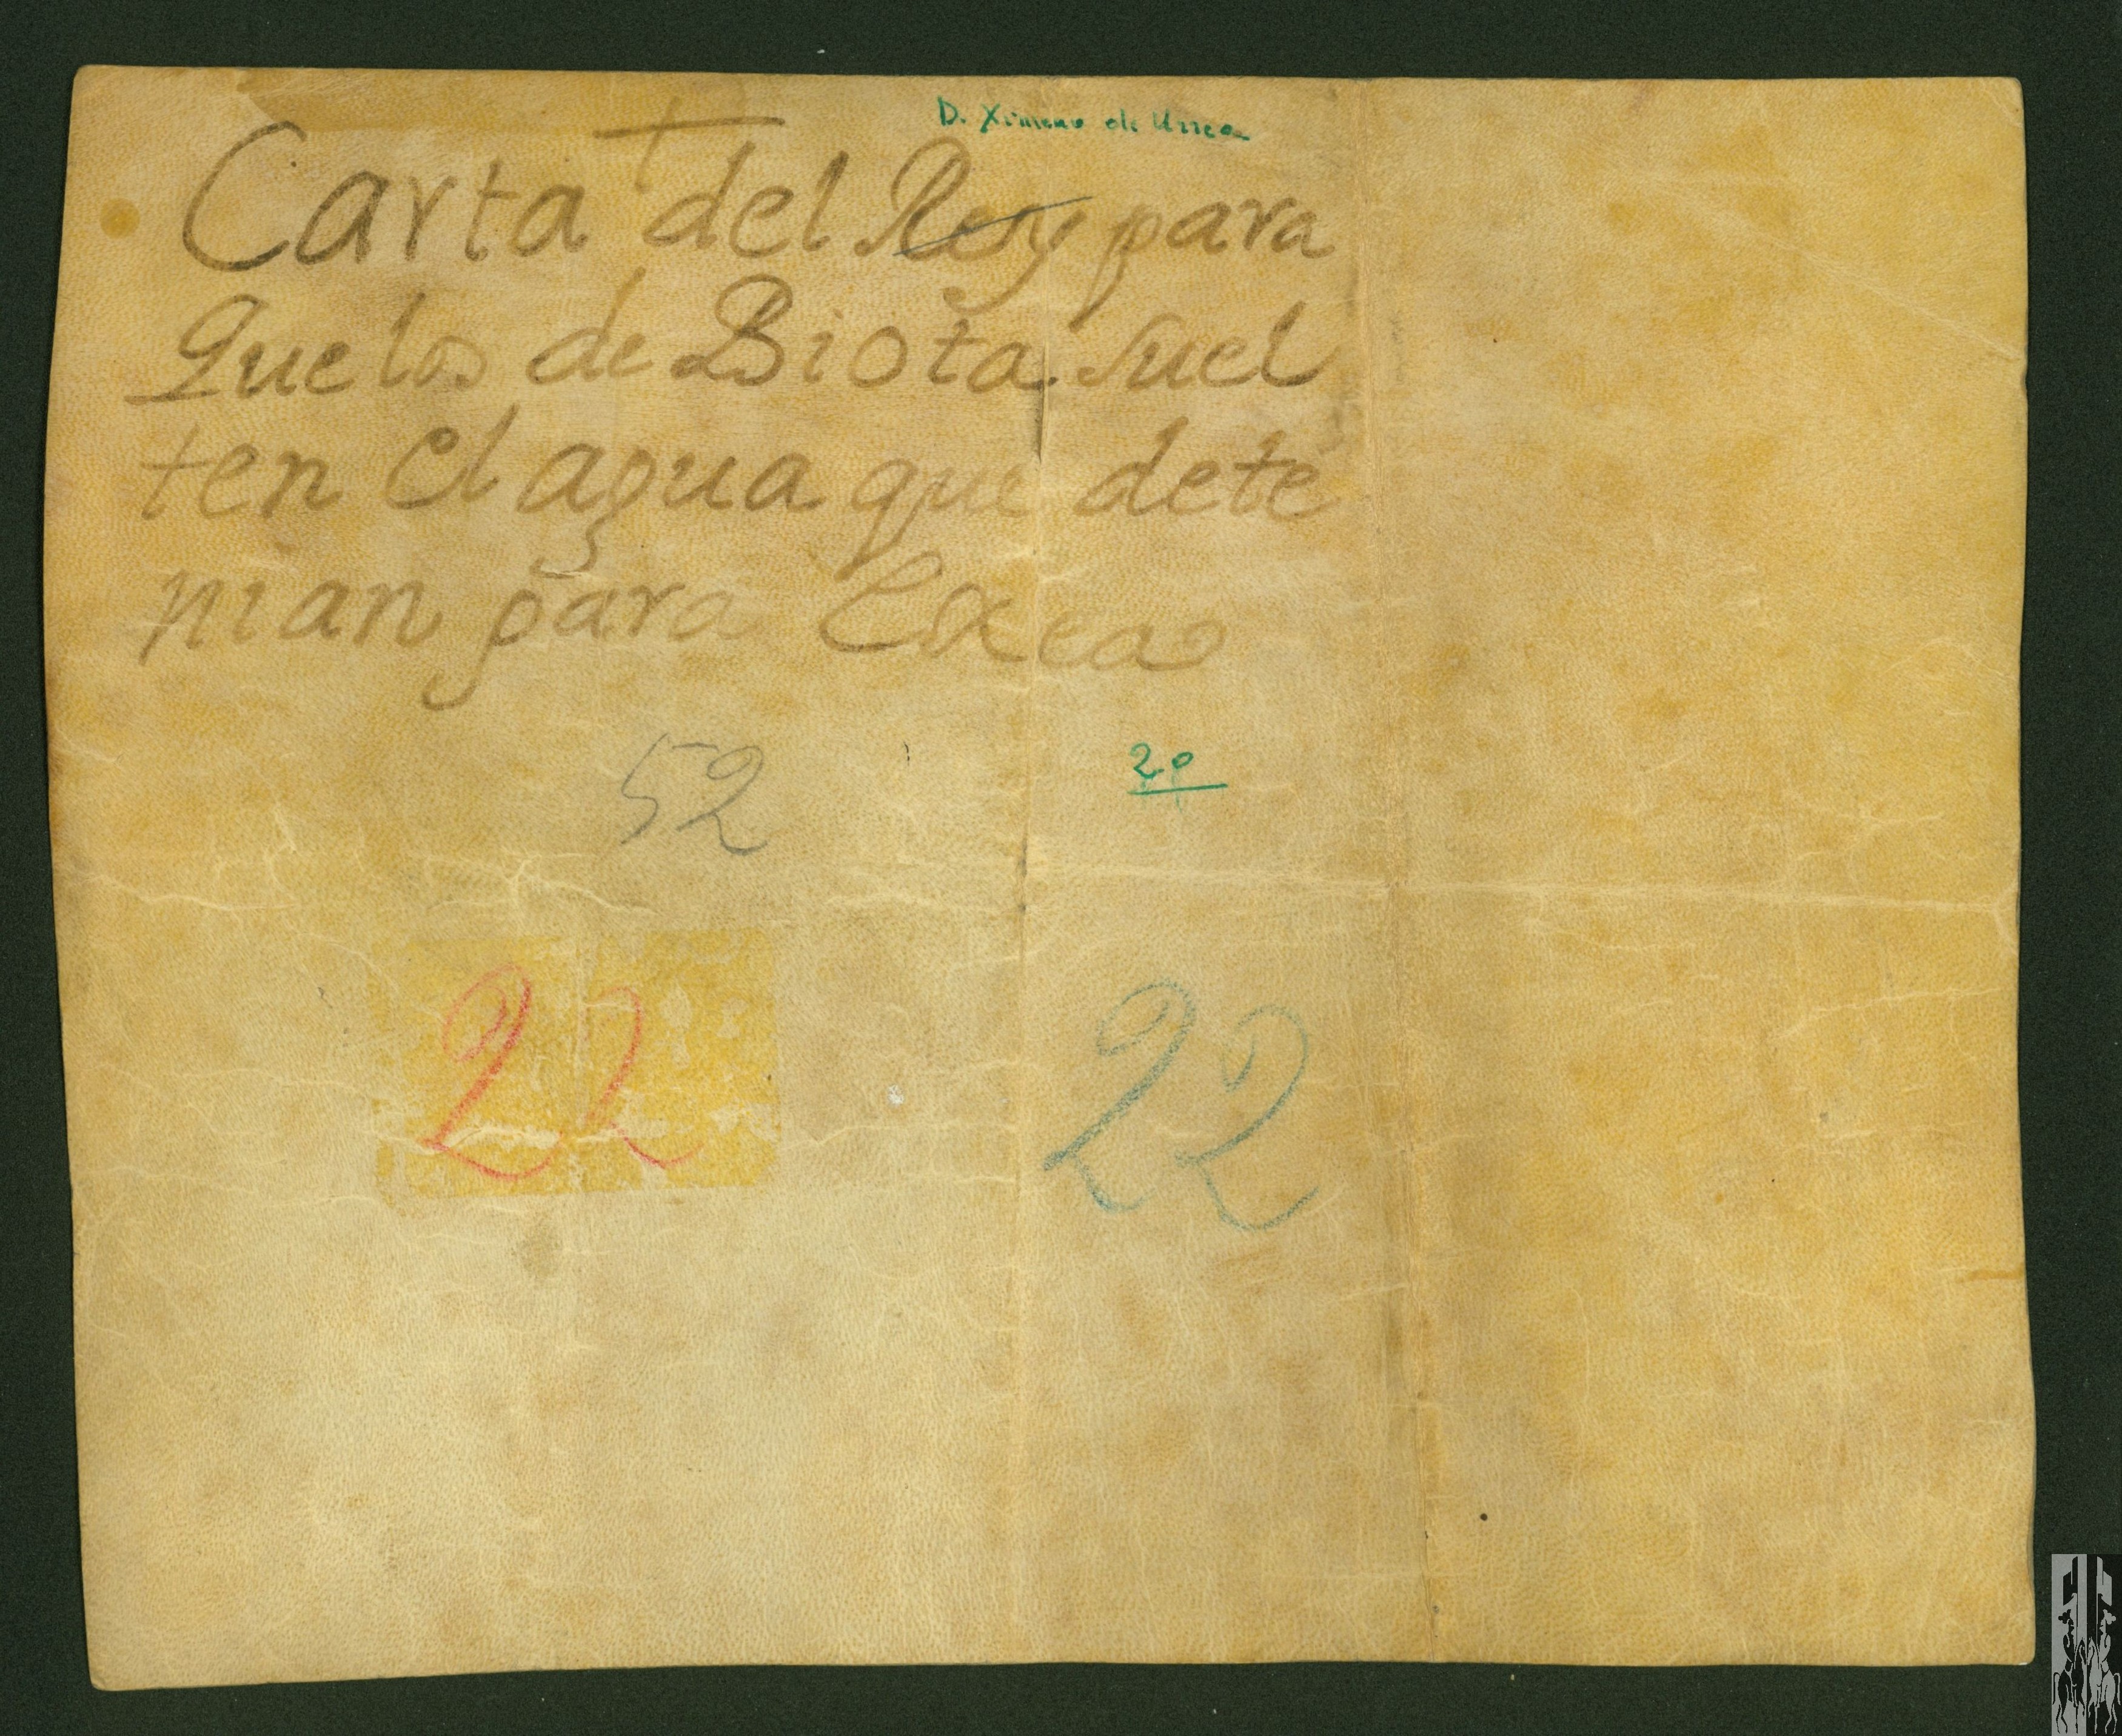 D. Ximeno de Urrea
Carta del Rey para
que los de Biota suel
ten el agua que dete
nian para Exea
52
20
22 22